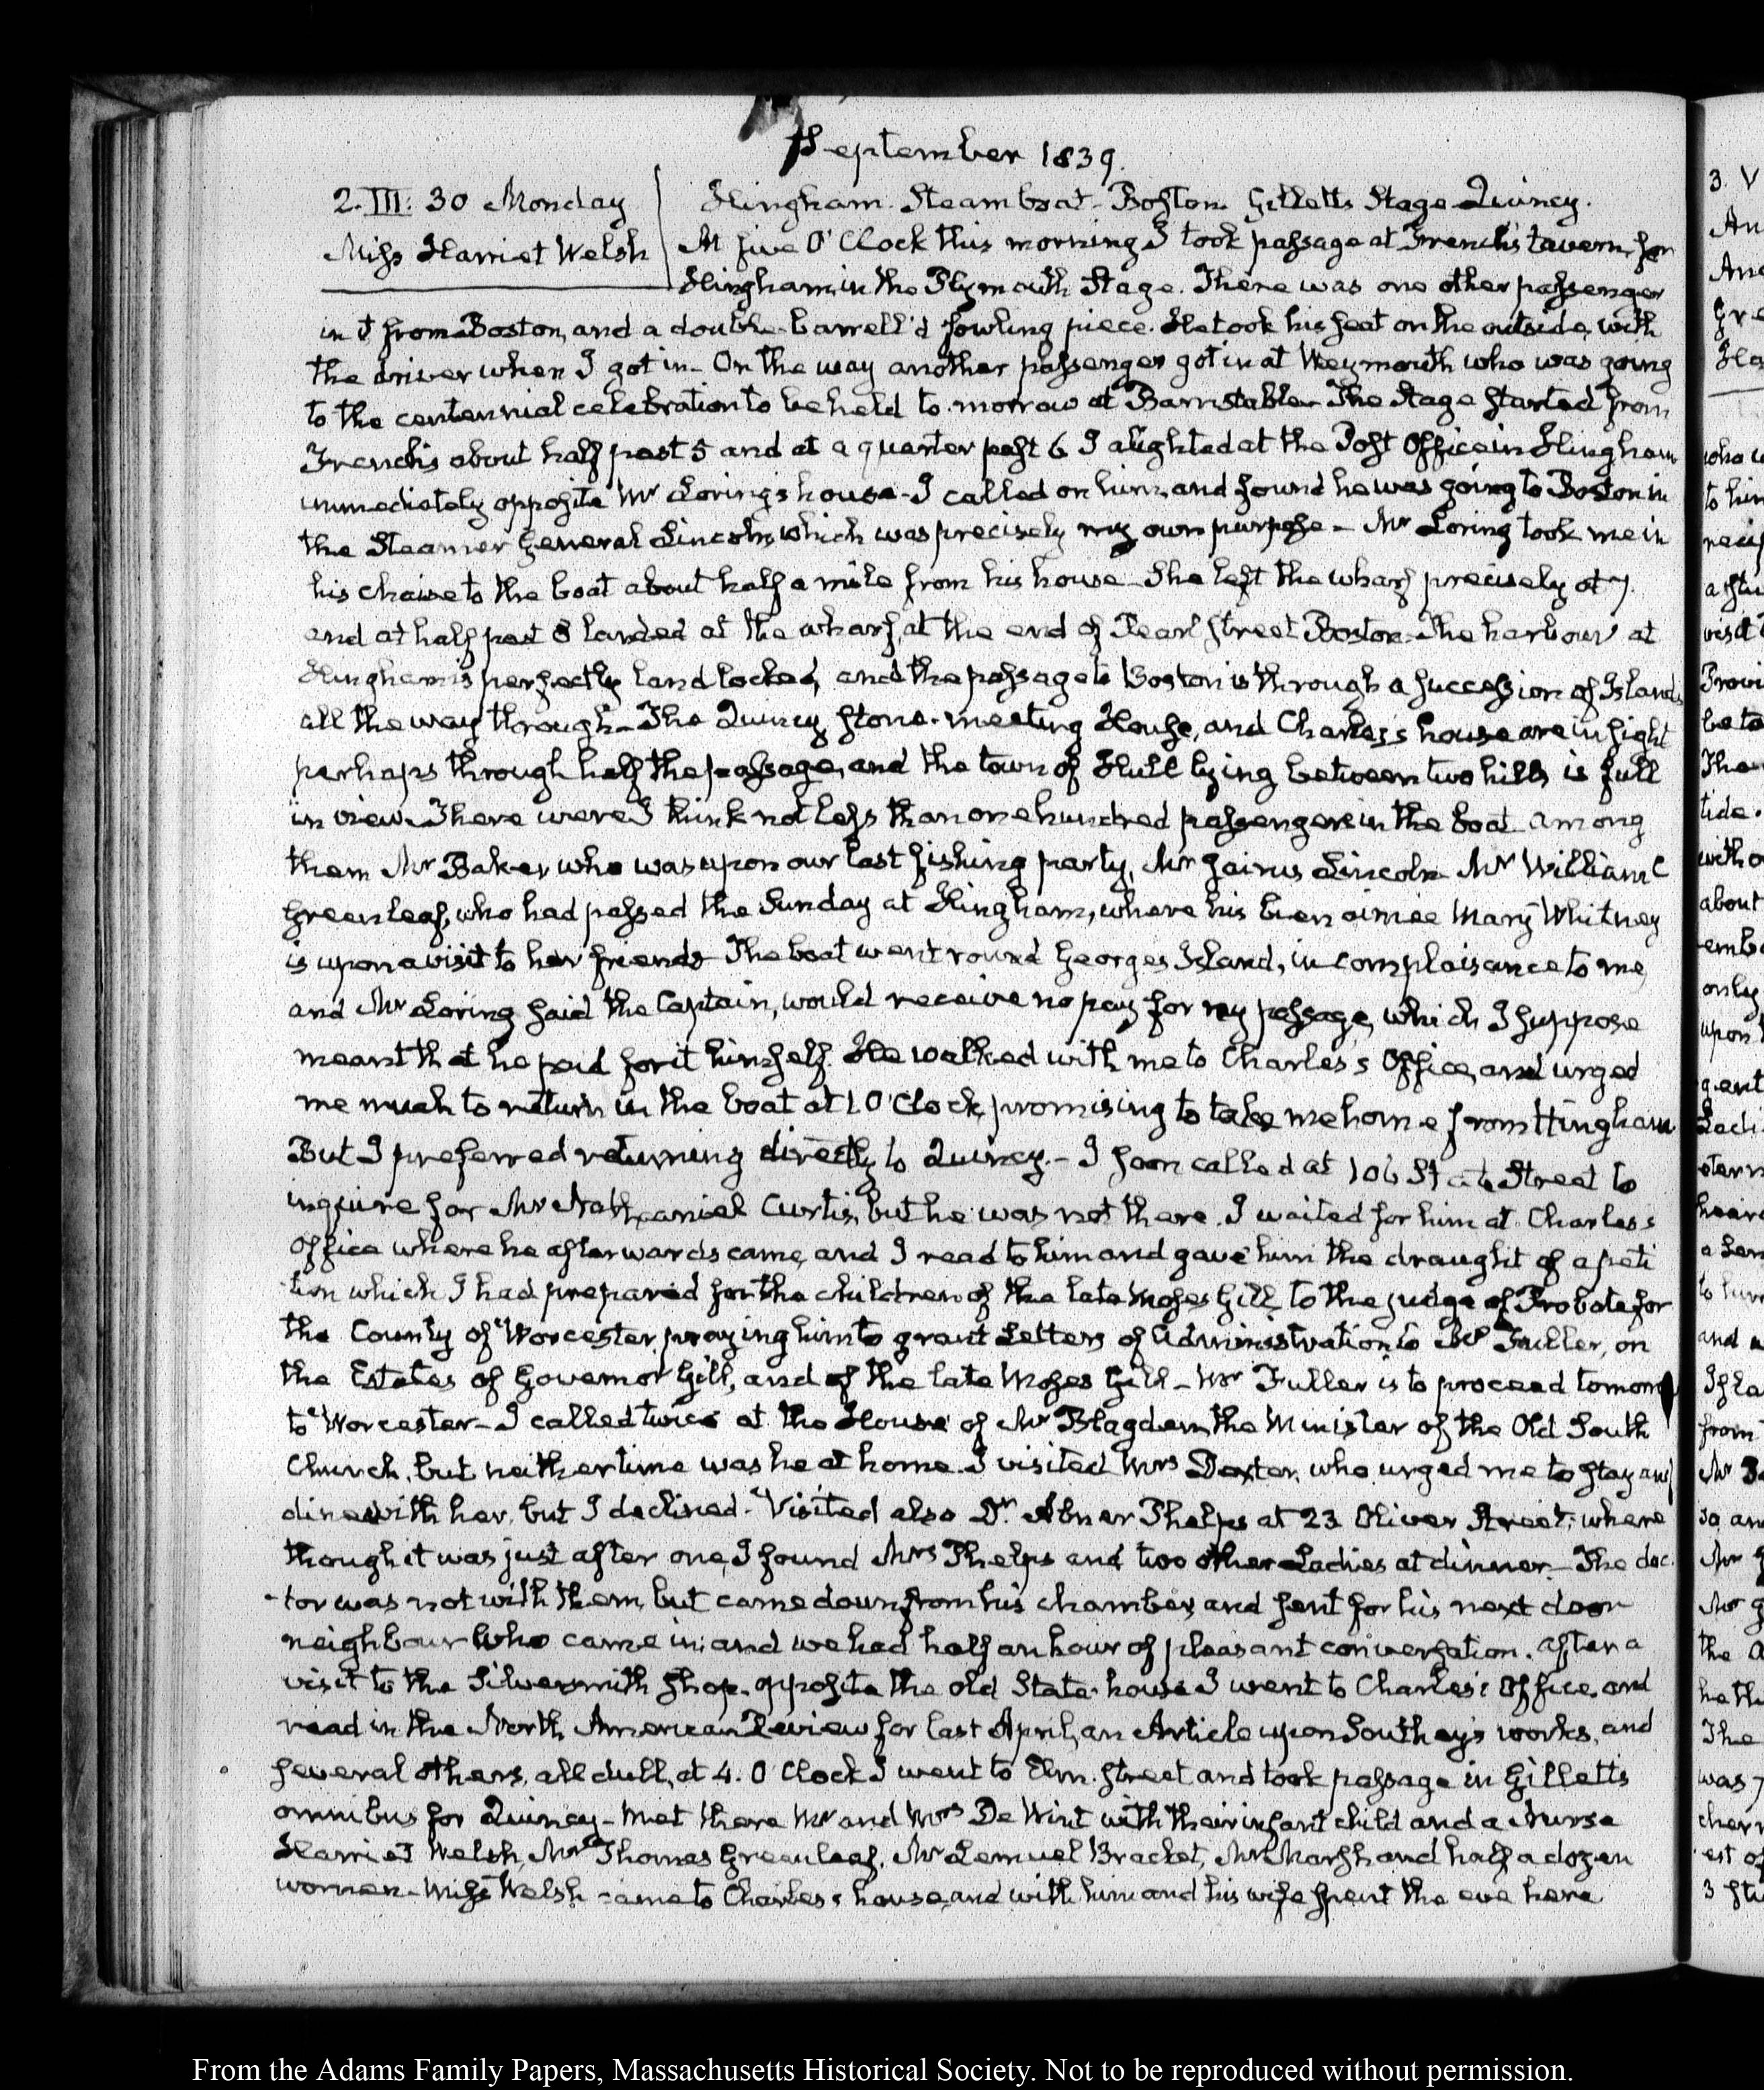 September 1839.
2. III: 30 Monday
Miss Harriet Welsh
Hingham. Steamboat. Boston. Gilletts Stage Quincy.
At five O'Clock this morning I took passage at French's tavern, for
Hingham in the Plymouth Stage. There was one other passenger
in it from Boston, and a double-barrell'd fowling piece. He took his seat on the outside, with
the driver when I got in. On the way another passenger got in at Weymouth who was going
to the centennial celebration to be held to-morrow at Barnstable. The Stage started from
French's about half past 5 and at a quarter past 6 I alighted at the Post Office in Hingham
immediately opposite Mr Loring's house. I called on him, and found he was going to Boston in
the Steamer General Lincoln, which was precisely my own purpose. Mr Loring took me in
his chaise to the boat about half a mile from his house. She left the wharf precisely at 7.
and at half past 8 landed at the wharf, at the end of Pearl Street Boston. The harbour at
Hingham is perfectly land locked, and the passage to Boston is through a succession of Islands
all the way through. The Quincy stone-meeting House, and Charles's house are in sight
perhaps through half the passage, and the town of Hull lying between two hills is full
in view. There were I think not less than one hundred passengers in the boat among
them Mr Baker who was upon our last fishing party, Mr Jairus Lincoln Mr William C
Greenleaf, who had passed the Sunday at Hingham, where his bien aimée Mary Whitney
is upon a visit to her friends. The boat went round Georges Island, in complaisance to me
and Mr Loring said the Captain, would receive no pay for my passage, which I suppose
meant that he paid for it himself. He walked with me to Charles's Office, and urged
me much to return in the boat at 10 O'Clock, promising to take me home from Hingham
But I preferred returning directly to Quincy. - I soon called at 106 State Street to
inquire for Mr Nathaniel Curtis, but he was not there. I waited for him at Charles's
Office where he afterwards came, and I read to him and gave him the draught of a peti
-tion which I had prepared for the children of the late Moses Gill, to the judge of Probate for
the County of Worcester, praying him to grant Letters of Administration to Mr Fuller, on
the Estates of Governor Gill, and of the late Moses Gill - Mr Fuller is to proceed tomorrow
to Worcester - I called twice at the House of Mr Blagden, the Minister of the Old South
Church, but neither time was he at home. I visited Mrs Dexter, who urged me to stay and
dine with her, but I declined. Visited also Dr Abner Phelps at 23 Oliver Street; where
though it was just after one, I found Mrs Phelps and two other Ladies at dinner - The doc
-tor was not with them, but came down from his chamber, and sent for his next door
neighbour who came in; and we had half an hour of pleasant conversation. After a
visit to the Silversmith shop, opposite the old State-house I went to Charles's Office, and
read in the North American Review for last April, an Article upon Southey's works, and
several others, all dull, at 4. O'Clock I went to Elm Street and took passage in Gilletts
omnibus for Quincy - Met there Mr and Mrs De Wint with their infant child and a Nurse
Harriet Welsh, Mrs Thomas Greenleaf, Mr Lemuel Bracket, Mr Marsh and half a dozen
women. Miss Welsh came to Charles's house, and with him and his wife spent the eve here
From the Adams Family Papers, Massachusetts Historical Society. Not to be reproduced without permission.